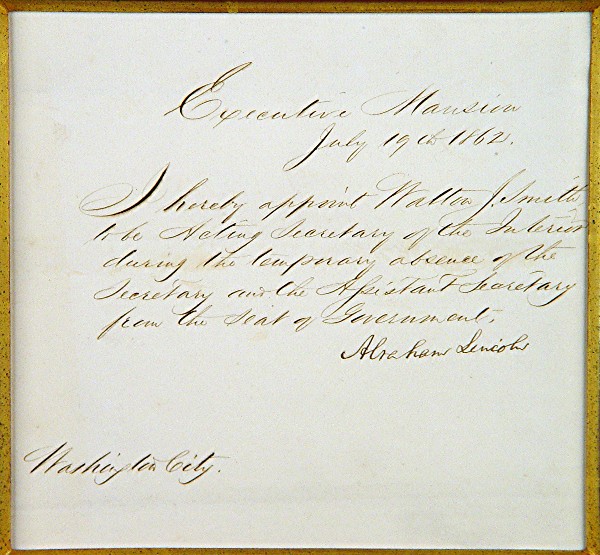 Executive Mansion
July 19th 1862.
I hereby appoint Walton J. Smith
to be Acting Secretary of the Interior
during the temporary absence of the
Secretary and the Assistant Secretary
from the Seat of Government.
Abraham Lincoln
Washington City.